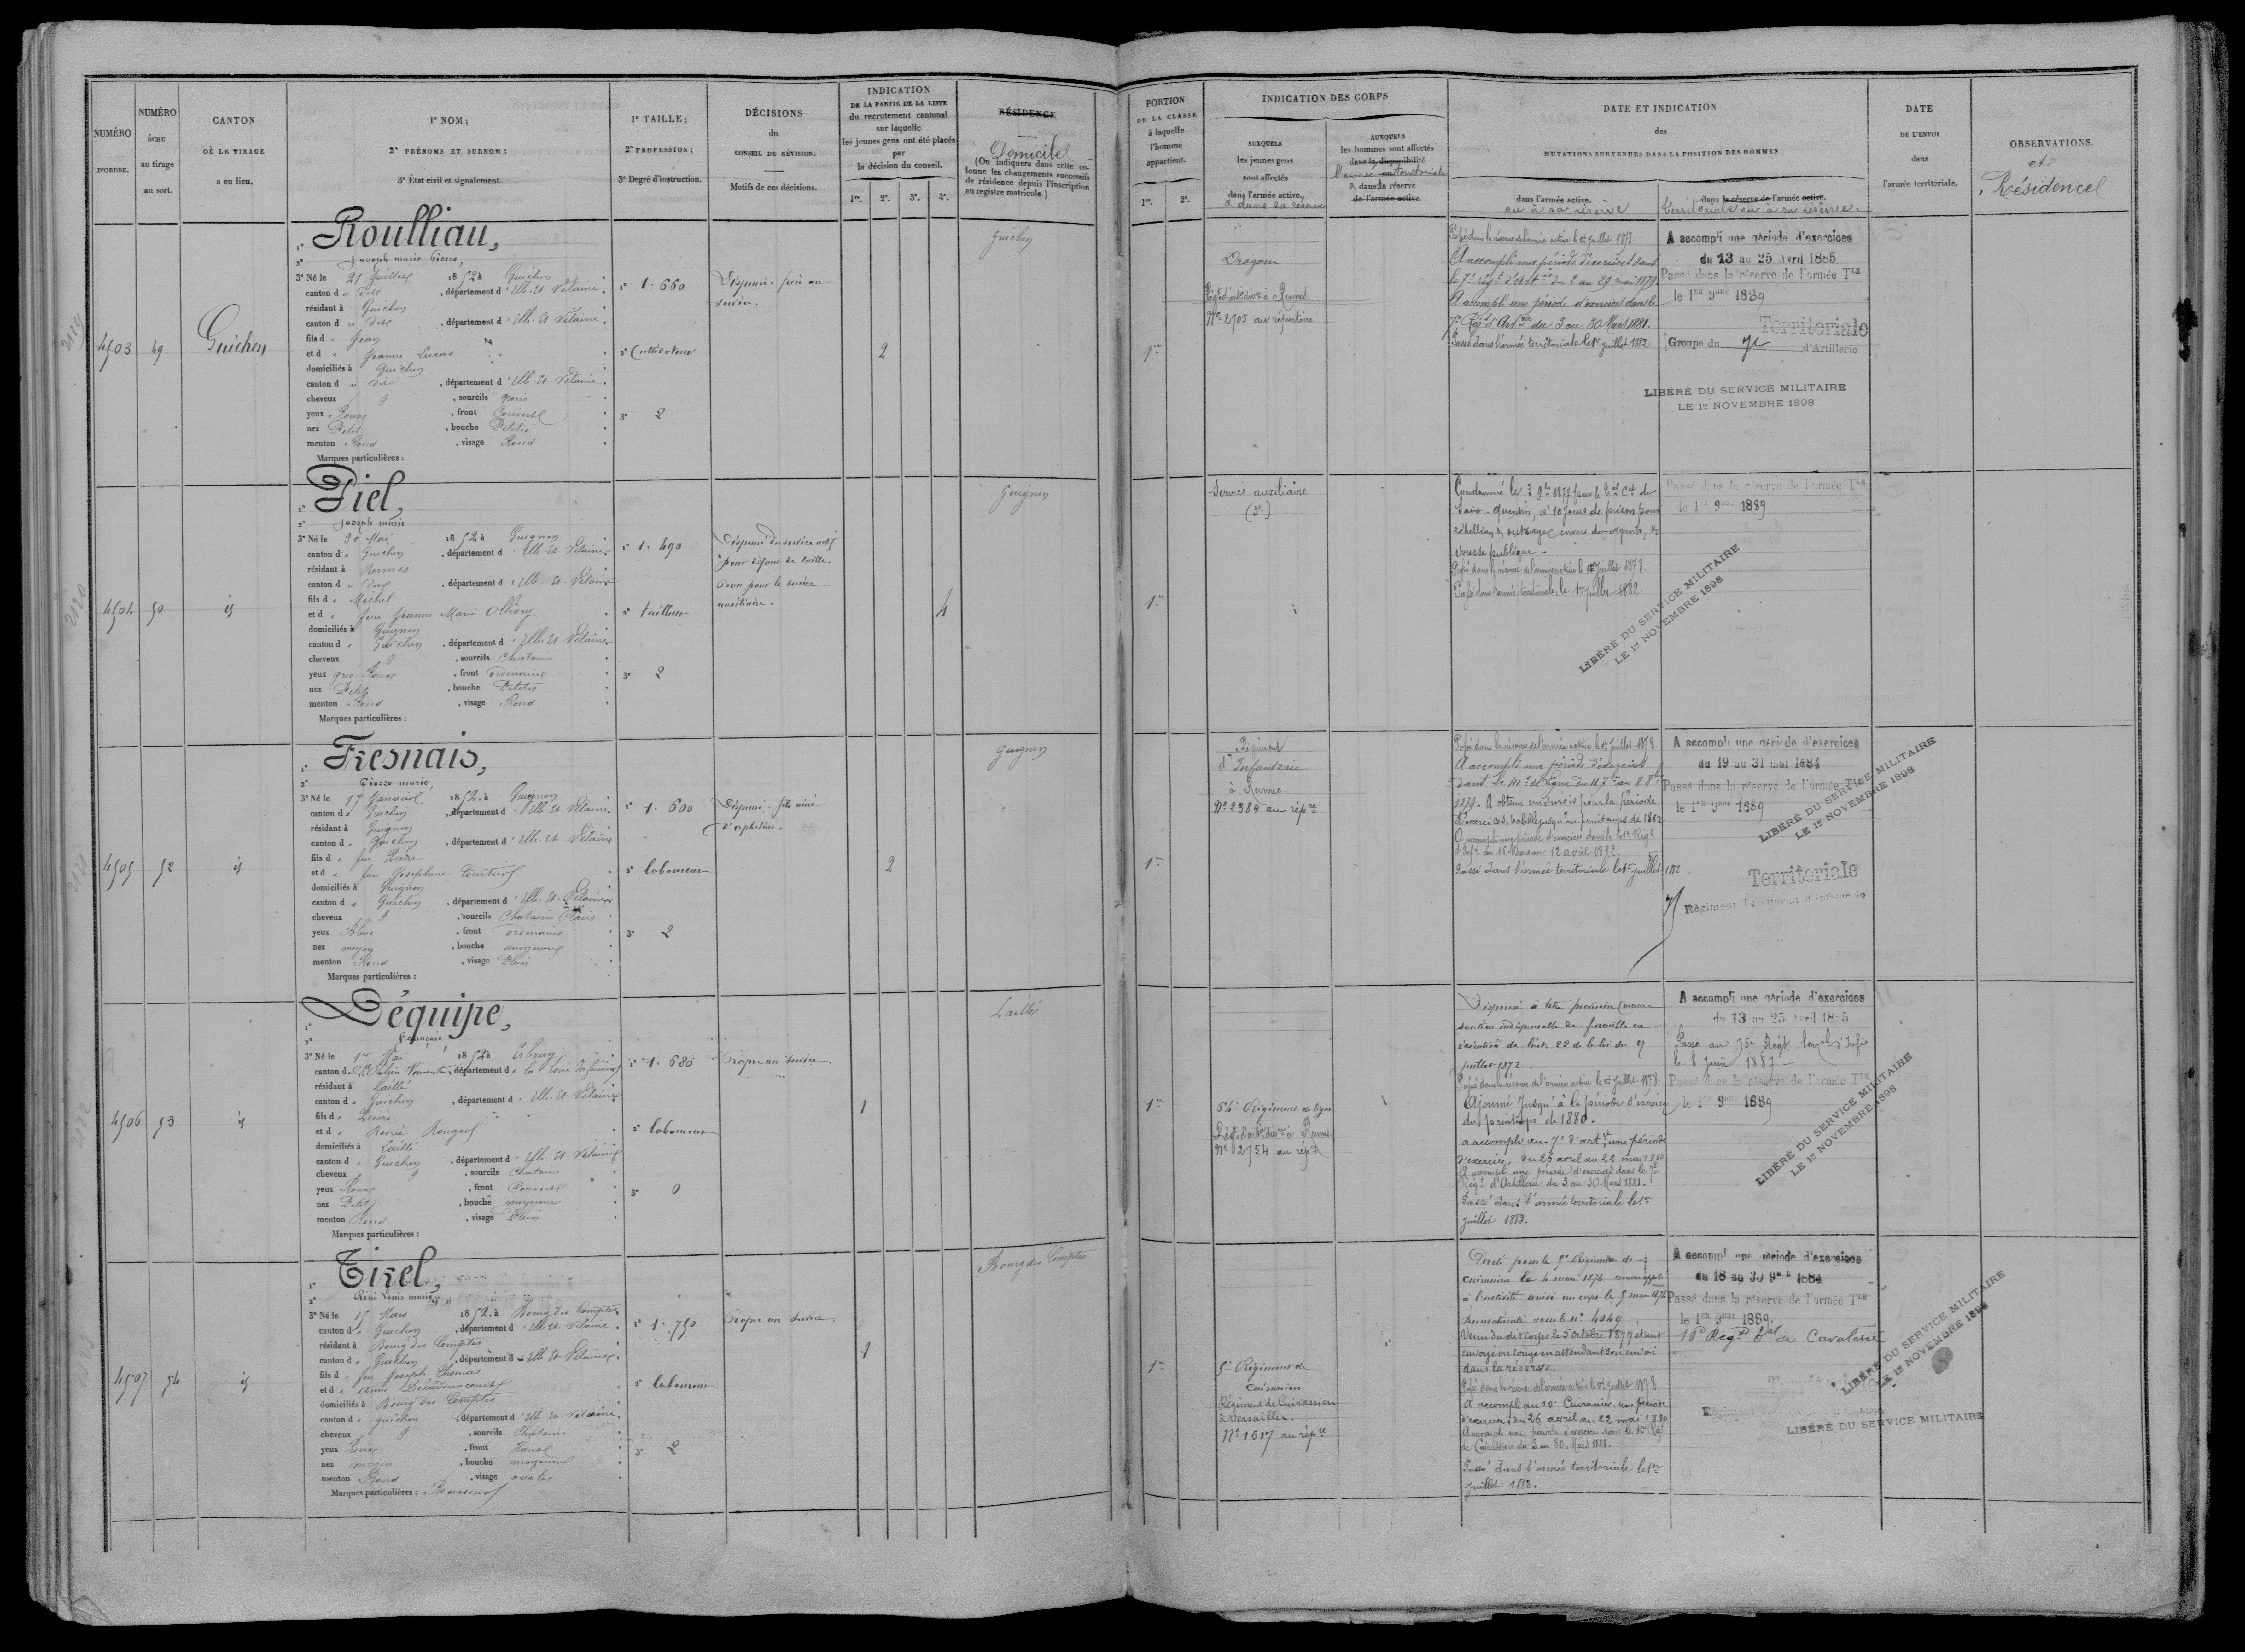 NUMÉRO
D'ORDRE.
NUMÉRO
ÉCHU
au tirage
au sort.
CANTON
OÙ LE TIRAGE
a eu lieu.
1° NOM;
2° PRÉNOMS ET SURNOM;
3° État civil et signalement.
1° TAILLE;
2° PROFESSION;
3° Degré d'instruction.
DÉCISIONS
du
CONSEIL DE RÉVISION.
Motifs de ces décisions.
INDICATION
DE LA PARTIE DE LA LISTE
du recrutement cantonal
sur laquelle
les jeunes gens ont été placés
par
la décision du conseil.
1re. 2e. 3e. 4e.
RÉSIDENCE
Domicile
(On indiquera dans cette co-
lonne les changements successifs
de résidence depuis l'inscription
au registre matricule.)
PORTION
DE LA CLASSE
à laquelle
l'homme
appartient.
1re. 2e.
INDICATION DES CORPS
AUXQUELS
les jeunes gens
sont affectés
dans l'armée active.
& dans sa réserve
AUXQUELS
les hommes sont affectés
dans la disponibilité
l'armée territoriale
& dans la réserve
de l'armée active.
DATE ET INDICATION
des
MUTATIONS SURVENUES DANS LA POSITION DES HOMMES
dans l'armée active.
ou à sa réserve
dans la réserve de l'armée active.
territoriale ou à sa réserve.
DATE
DE L'ENVOI
dans
l'armée territoriale.
OBSERVATIONS.
et
Résidence
4503 49 Guichen
1° Roulliau,
2° Joseph marie Pierre,
3° Né le 21 Juillet 1852 à Guichen
canton d u dit, département d'Ille-et-Vilaine.
résidant à Guichen
canton d u dit, département d'Ille-et-Vilaine.
fils d e Jean
et d e Jeanne Lucas
domiciliés à Guichen
canton d u dit, département d'Ille-et-Vilaine.
cheveux &, sourcils noirs
yeux Roux, front Couvert
nez Petit, bouche Petite
menton Rond, visage Rond
Marques particulières :
1° 1.660
2° Cultivateur
3° 2
Dispensé. frère au
service.
2
Guichen
1re
Dragon
Régt d'artie divre à Rennes.
N° 2705 au répertoire
Passé dans la réserve de l'armée active le 1er Juillet 1878.
A accompli une période d'exercices dans
le 7e régt d'artie du 2 au 29 mai 1879.
A accompli une période d'exercices dans le
7e Régt d'Artie du 3 au 30 Mars 1881.
Passé dans l'armée territoriale le 1er juillet 1882
A accompli une période d'exercices
du 13 au 25 Avril 1885
Passé dans la réserve de l'armée Tle
le 1er 9bre 1889
Territoriale
Groupe du 7e d'Artillerie
LIBÉRÉ DU SERVICE MILITAIRE
LE 1er NOVEMBRE 1898
4504 50 id
1° Piel,
2° Joseph marie
3° Né le 30 Mai 1852 à Guignen
canton d e Guichen, département d'Ille-et-Vilaine
résidant à Rennes
canton d u dit, département d'Ille-et-Vilaine
fils d e Michel
et d e feue Jeanne Marie Ollivry
domiciliés à Guignen
canton d e Guichen, département d'Ille-et-Vilaine
cheveux &, sourcils Chatains
yeux gris Roux, front ordinaire
nez Petit, bouche Petite
menton Rond, visage Rond
Marques particulières :
1° 1.490
2° tailleur
3° 2
Dispensé du service actif
pour défaut de taille.
Bon pour le service
auxiliaire.
4
Guignen
1re
Service auxiliaire
(3e)
Condamné le 3 9bre 1877 par le Bal Cel de
Saint-Quentin, à 10 jours de prison pour
rébellion & outrages envers des agents, &
ivresse publique.
Passé dans la réserve de l'armée active le 1er Juillet 1878.
Passé dans l'armée territoriale, le 1er juillet 1882.
Passé dans la réserve de l'armée Tle
le 1er 9bre 1889
LIBÉRÉ DU SERVICE MILITAIRE
LE 1er NOVEMBRE 1898
4505 52 id
1° Fresnais,
2° Pierre marie,
3° Né le 17 Janvier 1852 à Guignen
canton d e Guichen, département d'Ille-et-Vilaine
résidant à Guignen
canton d e Guichen, département d'Ille-et-Vilaine
fils d e feu Pierre
et d e feue Josephine
domiciliés à Guignen
canton d e Guichen, département d'Ille-et-Vilaine
cheveux &, sourcils Chatains Clairs
yeux Bleus, front ordinaire
nez moyen, bouche moyenne
menton Rond, visage Plein
Marques particulières :
1° 1.600
2° laboureur
3° 2
Dispensé. fils aîné
d'orphelins.
2
Guignen
1re
Régiment
d'Infanterie
à Rennes.
N° 2384 au répre
Passé dans la réserve de l'armée active le 1er Juillet 1878
A accompli une période d'exercices
dans le 41e de Ligne du 11 7bre au 8 8bre
1879. A obtenu un sursis pour la période
d'exercices, valable jusqu'au printemps de 1882
A accompli une période d'exercices dans le 41e Régt
d'Infie du 16 Mars au 12 avril 1882.
Passé dans l'armée territoriale le 1er juillet 1882
A accompli une période d'exercices
du 19 au 31 mai 1884
Passé dans la réserve de l'armée Tle
le 1er 9bre 1889
Territoriale
Régiment Territorial d'Infanterie
LIBÉRÉ DU SERVICE MILITAIRE
LE 1er NOVEMBRE 1898
4506 53 id
1° Déquipe,
2° François
3° Né le 1er Mai 1852 à Erbray
canton d, département d e la Loire Inférieure
résidant à Laillé
canton d e Guichen, département d'Ille-et-Vilaine
fils d e Pierre
et d e Renée
domiciliés à Laillé
canton d e Guichen, département d'Ille-et-Vilaine
cheveux &, sourcils Chatains
yeux Roux, front Couvert
nez Petit, bouche moyenne
menton Rond, visage Plein
Marques particulières :
1° 1.680
2° laboureur
3° 0
Propre au service.
1
Laillé
1re
64e Régiment de ligne
Régt d'artie divre à Rennes
N° 2754 au répre
Dispensé à titre provisoire comme
soutien indispensable de famille en
exécution de l'art. 22 de la loi du 27
juillet 1872.
Passé dans la réserve de l'armée active le 1er Juillet 1878.
Ajourné jusqu'à la période d'exercices
du printemps de 1880.
a accompli au 7e d'artie, une période
d'exercices, du 26 avril au 22 mai 1880
A accompli une période d'exercices dans le 7e
Régt d'Artillerie du 3 au 30 Mars 1881.
Passé dans l'armée territoriale le 1er
juillet 1882.
A accompli une période d'exercices
du 13 au 25 Avril 1885
Passé au 75e Régt terral d'Infie
le 8 Juin 1887
Passé dans la réserve de l'armée Tle
le 1er 9bre 1889
LIBÉRÉ DU SERVICE MILITAIRE
LE 1er NOVEMBRE 1898
4507 54 id
1° Tirel,
2° René Louis marie,
3° Né le 15 Mars 1852 à Bourg des Comptes
canton d e Guichen, département d'Ille-et-Vilaine
résidant à Bourg des Comptes
canton d e Guichen, département d'Ille-et-Vilaine
fils d e feu Joseph Thomas
et d e Anne
domiciliés à Bourg des Comptes
canton d e guichen, département d'Ille-et-Vilaine
cheveux &, sourcils Chatains
yeux Roux, front Haut
nez moyen, bouche moyenne
menton Rond, visage ovale
Marques particulières :
1° 1.750
2° laboureur
3° 2
Propre au service.
1
Bourg des Comptes
1re
5e Régiment de
cuirassiers
Régiment de Cuirassiers
à Versailles.
N° 1617 au répre
Dirigé pour le 5e Régiment de
cuirassiers le 4 mars 1874 comme appelé
à l'activité arrivé au corps le 5 mars 1874
Immatriculé sous le n° 4049
Venu du dit corps le 5 octobre 1877 étant
envoyé en congé en attendant son envoi
dans la réserve.
Passé dans la réserve de l'armée active le 1er Juillet 1878
A accompli au 10e Cuirassier, une période
d'exercices, du 26 avril au 22 mai 1880
Accompli une période d'exercices dans le 10e Régt
de Cuirassiers du 3 au 30 Mars 1881.
Passé dans l'armée territoriale le 1er
juillet 1882.
A accompli une période d'exercices
du 18 au 30 9bre 1884
Passé dans la réserve de l'armée Tle
le 1er 9bre 1889.
LIBÉRÉ DU SERVICE MILITAIRE
LE 1er NOVEMBRE 1898
LIBÉRÉ DU SERVICE MILITAIRE